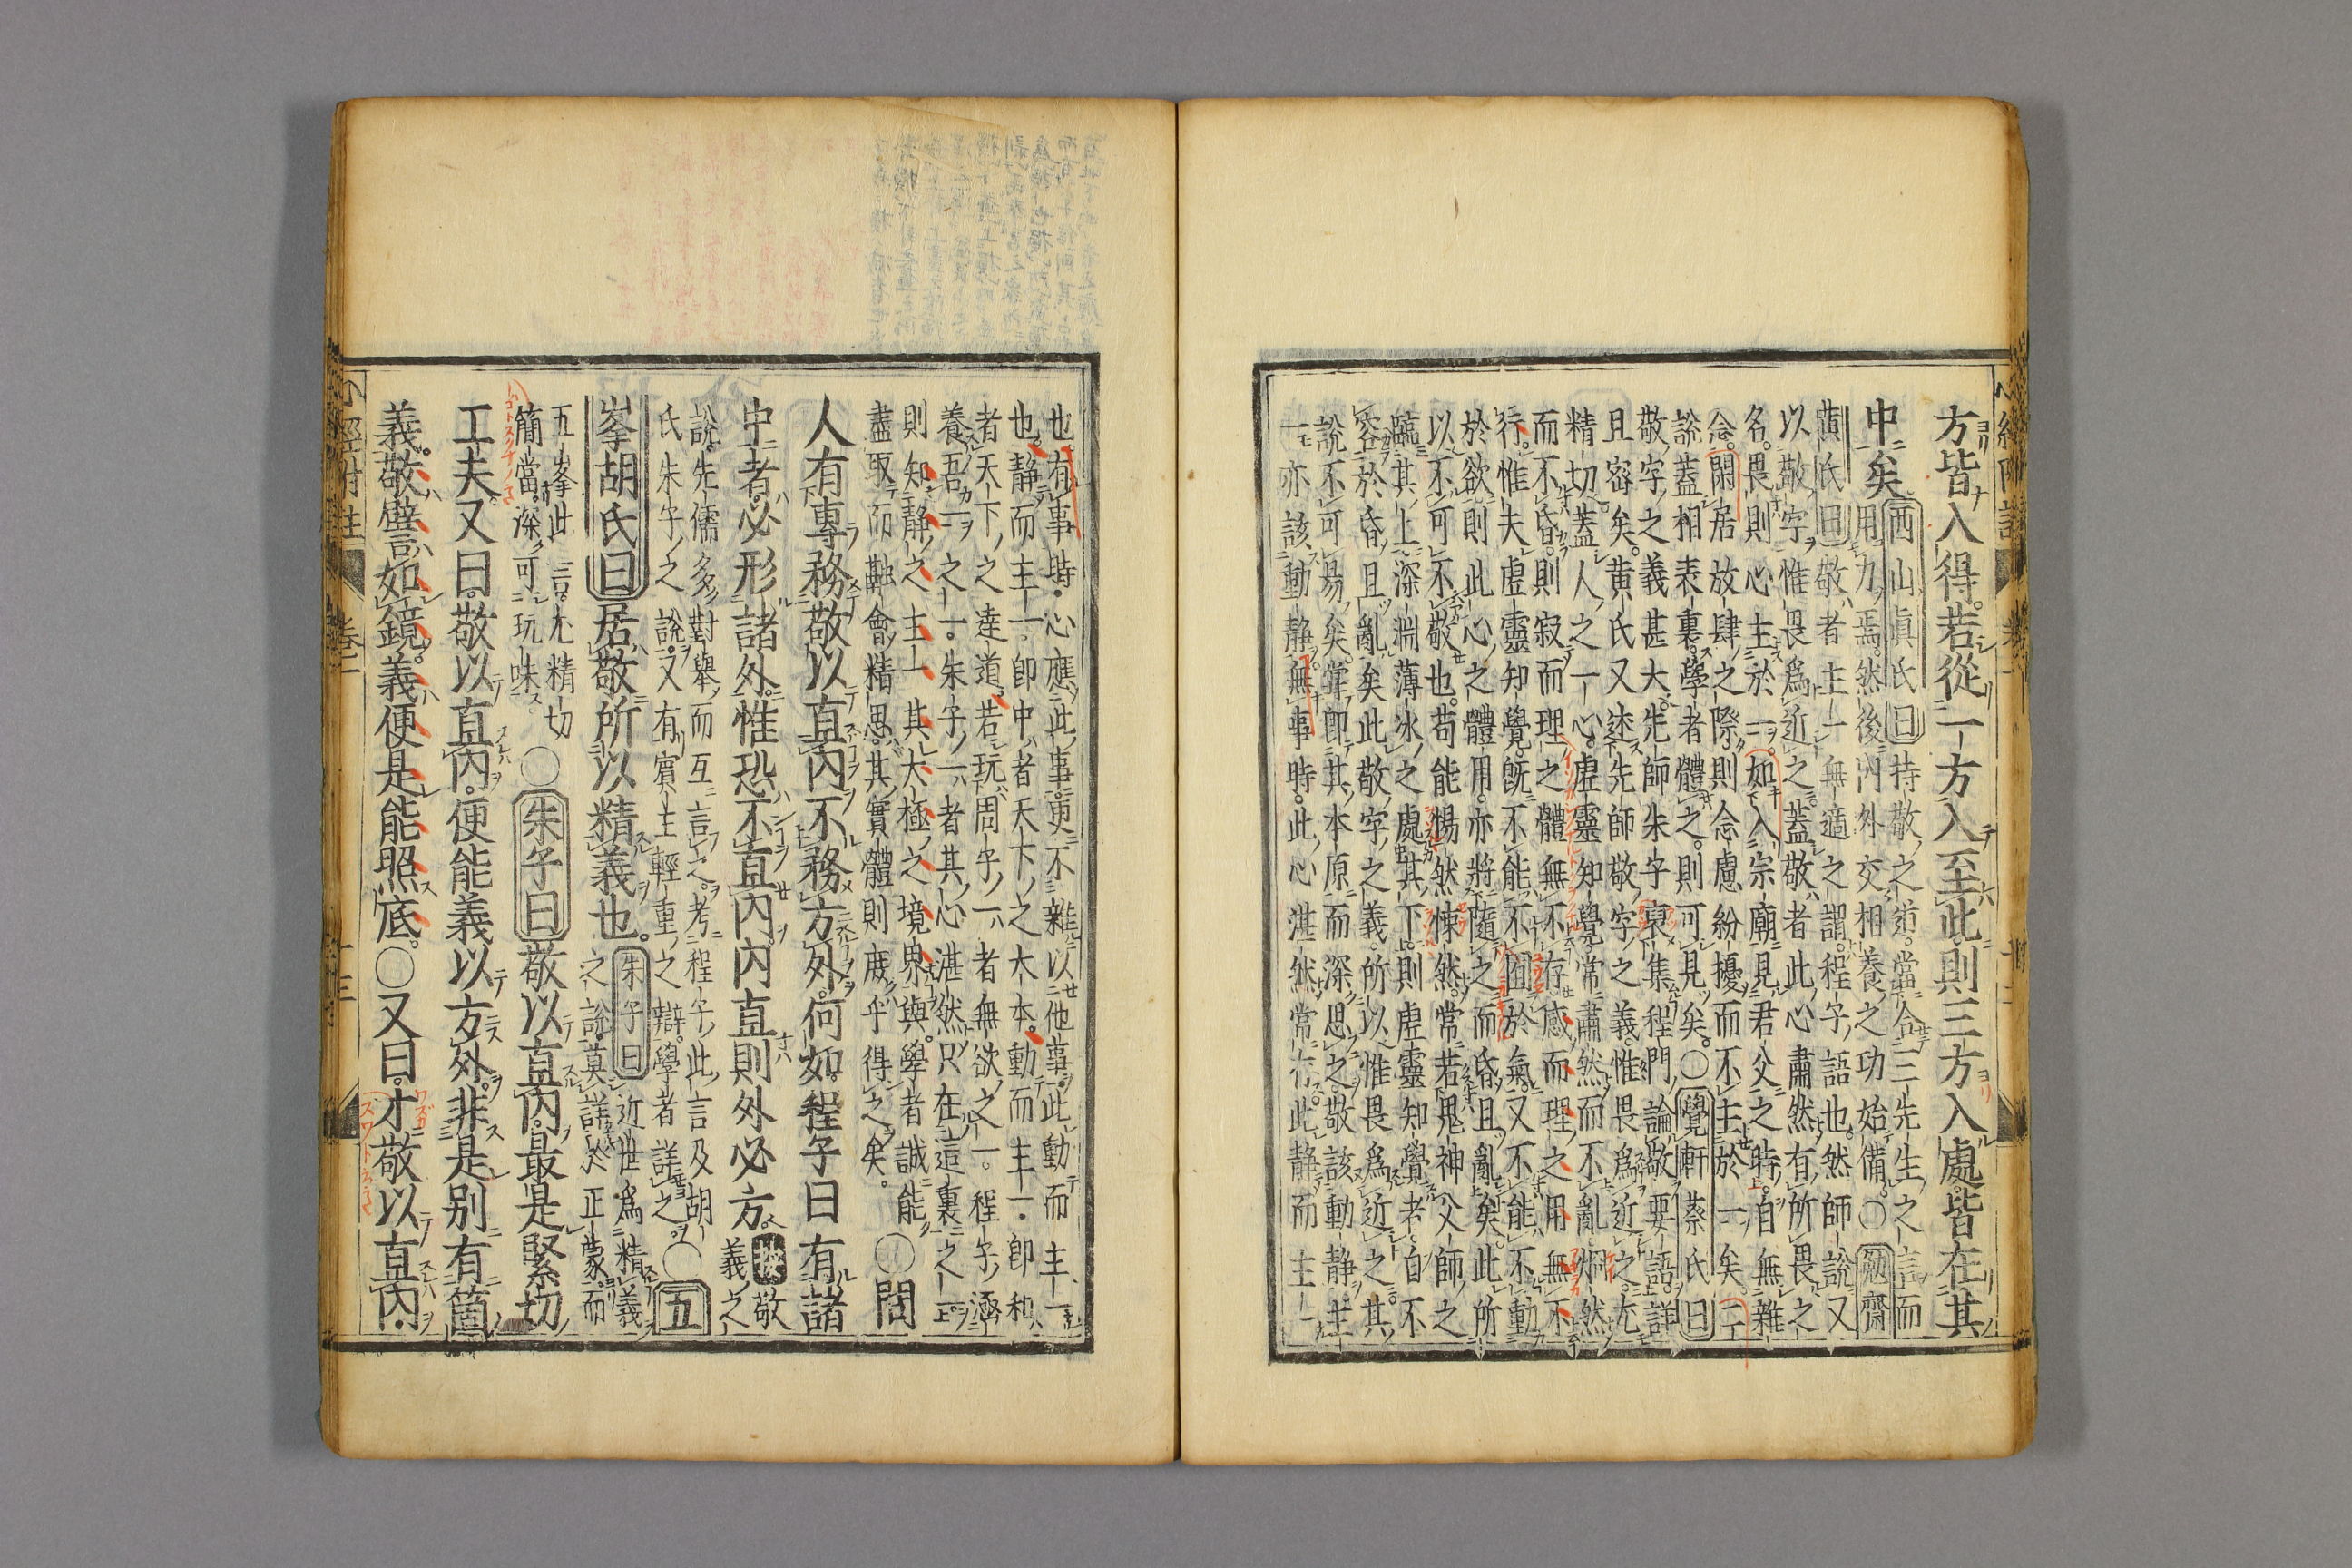 方皆入得若從一方入至此則三方入處皆在其
中矣
西山眞氏曰持敬之道當合三先生之言而
用力焉然後内外交相養之功始備○勉齋
黄氏曰敬者主一無適之謂程子語也然師說又
以敬字惟畏爲近之蓋敬者此心肅然有所畏之
名畏則心主於一如入宗廟見君父之時自無雜
念閑居放肆之際則念慮紛擾而不主於一矣二
說蓋相表裏學者體之則可見矣○覺軒蔡氏曰
敬字之義甚大先師朱子裒集程門論敬要語詳
且密矣黄氏又述先師敬字之義惟畏爲近之尤
精切蓋人之一心虛靈知覺常肅然而不亂炯然
而不昏則寂而理之體無不存感而理之用無不
行惟夫虛靈知覺既不能不囿於氣又不能不動
於欲則此心之體用亦將隨之而昏且亂矣此所
以不可不敬也苟能惕然悚然常若鬼神父師之
臨其上深淵薄冰之處其下則虛靈知覺者自不
容於昏且亂矣此敬字之義所以惟畏爲近之其
說不可易矣嘗即其本原而深思之敬該動静主
一亦該動静無事時此心湛然常存此静而主一
也有事時心應此事更不雜以他事此動而主一
也静而主一即中者天下之大本動而主一即和
者天下之達道若玩周子一者無欲之一程子涵
養吾一之一朱子一者其心湛然只在這裏之一
則知静之主一其大極之境界與學者誠能
盡取而融會精思其實體則庶乎得之矣○問
人有專務敬以直内不務方外何如程子曰有諸
中者必形諸外惟恐不直内内直則外必方
按敬
義之
說先儒多對舉而互言之考程子此言及胡
氏朱子之說又有賓主輕重之辯學者詳之○五
峯胡氏曰居敬所以精義也
朱子曰近世爲精義
之說莫詳於正蒙而
五峯此言尤精切
簡當深可玩味
○朱子曰敬以直内最是緊切
工夫又曰敬以直内便能義以方外非是別有箇
義敬譬如鏡義便是能照底○又曰才敬以直内